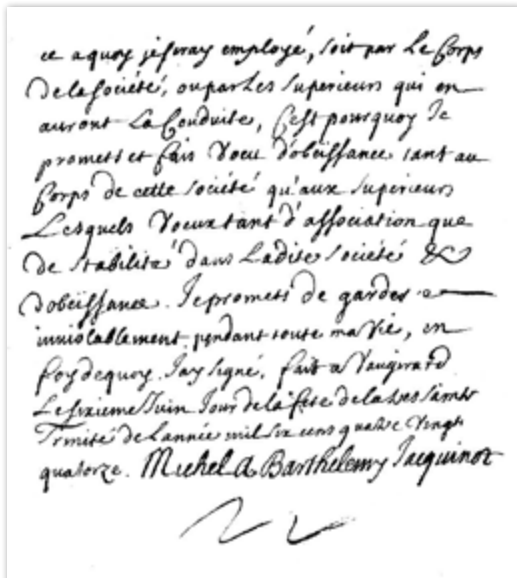 ce a quoy je seray employé, soit par Le Corps
de la Société, ou par Les Superieurs qui en
auront La Conduite, C'est pourquoy Je
promets et fais Voeu d'obeissance tant au
Corps de cette Société qu'aux Superieurs
Lesquels Voeux tant d'association que
de stabilité dans Ladite Société &
d'obeissance. Je promets de garder
inviolablement pendant toute ma Vie, en
foy de quoy. Jay signé, fait a Vaugirard
Le sixieme Juin Jour de la fete de la tres Sainte
Trinité de L'année mil six cens quatre Vingt
quatorze. Michel A Barthelemy Jacquinot